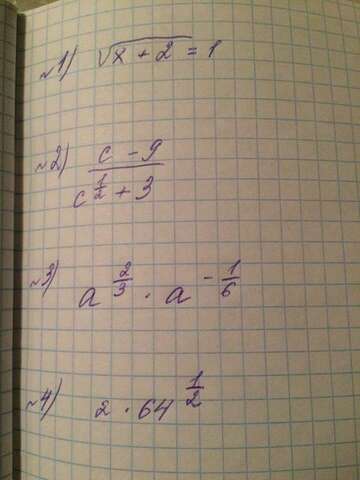 №1) √(x + 2) = 1
№2) (c - 9)/(c^(1/2) + 3)
№3) a^(2/3) · a^(-1/6)
№4) 2 · 64^(1/2)